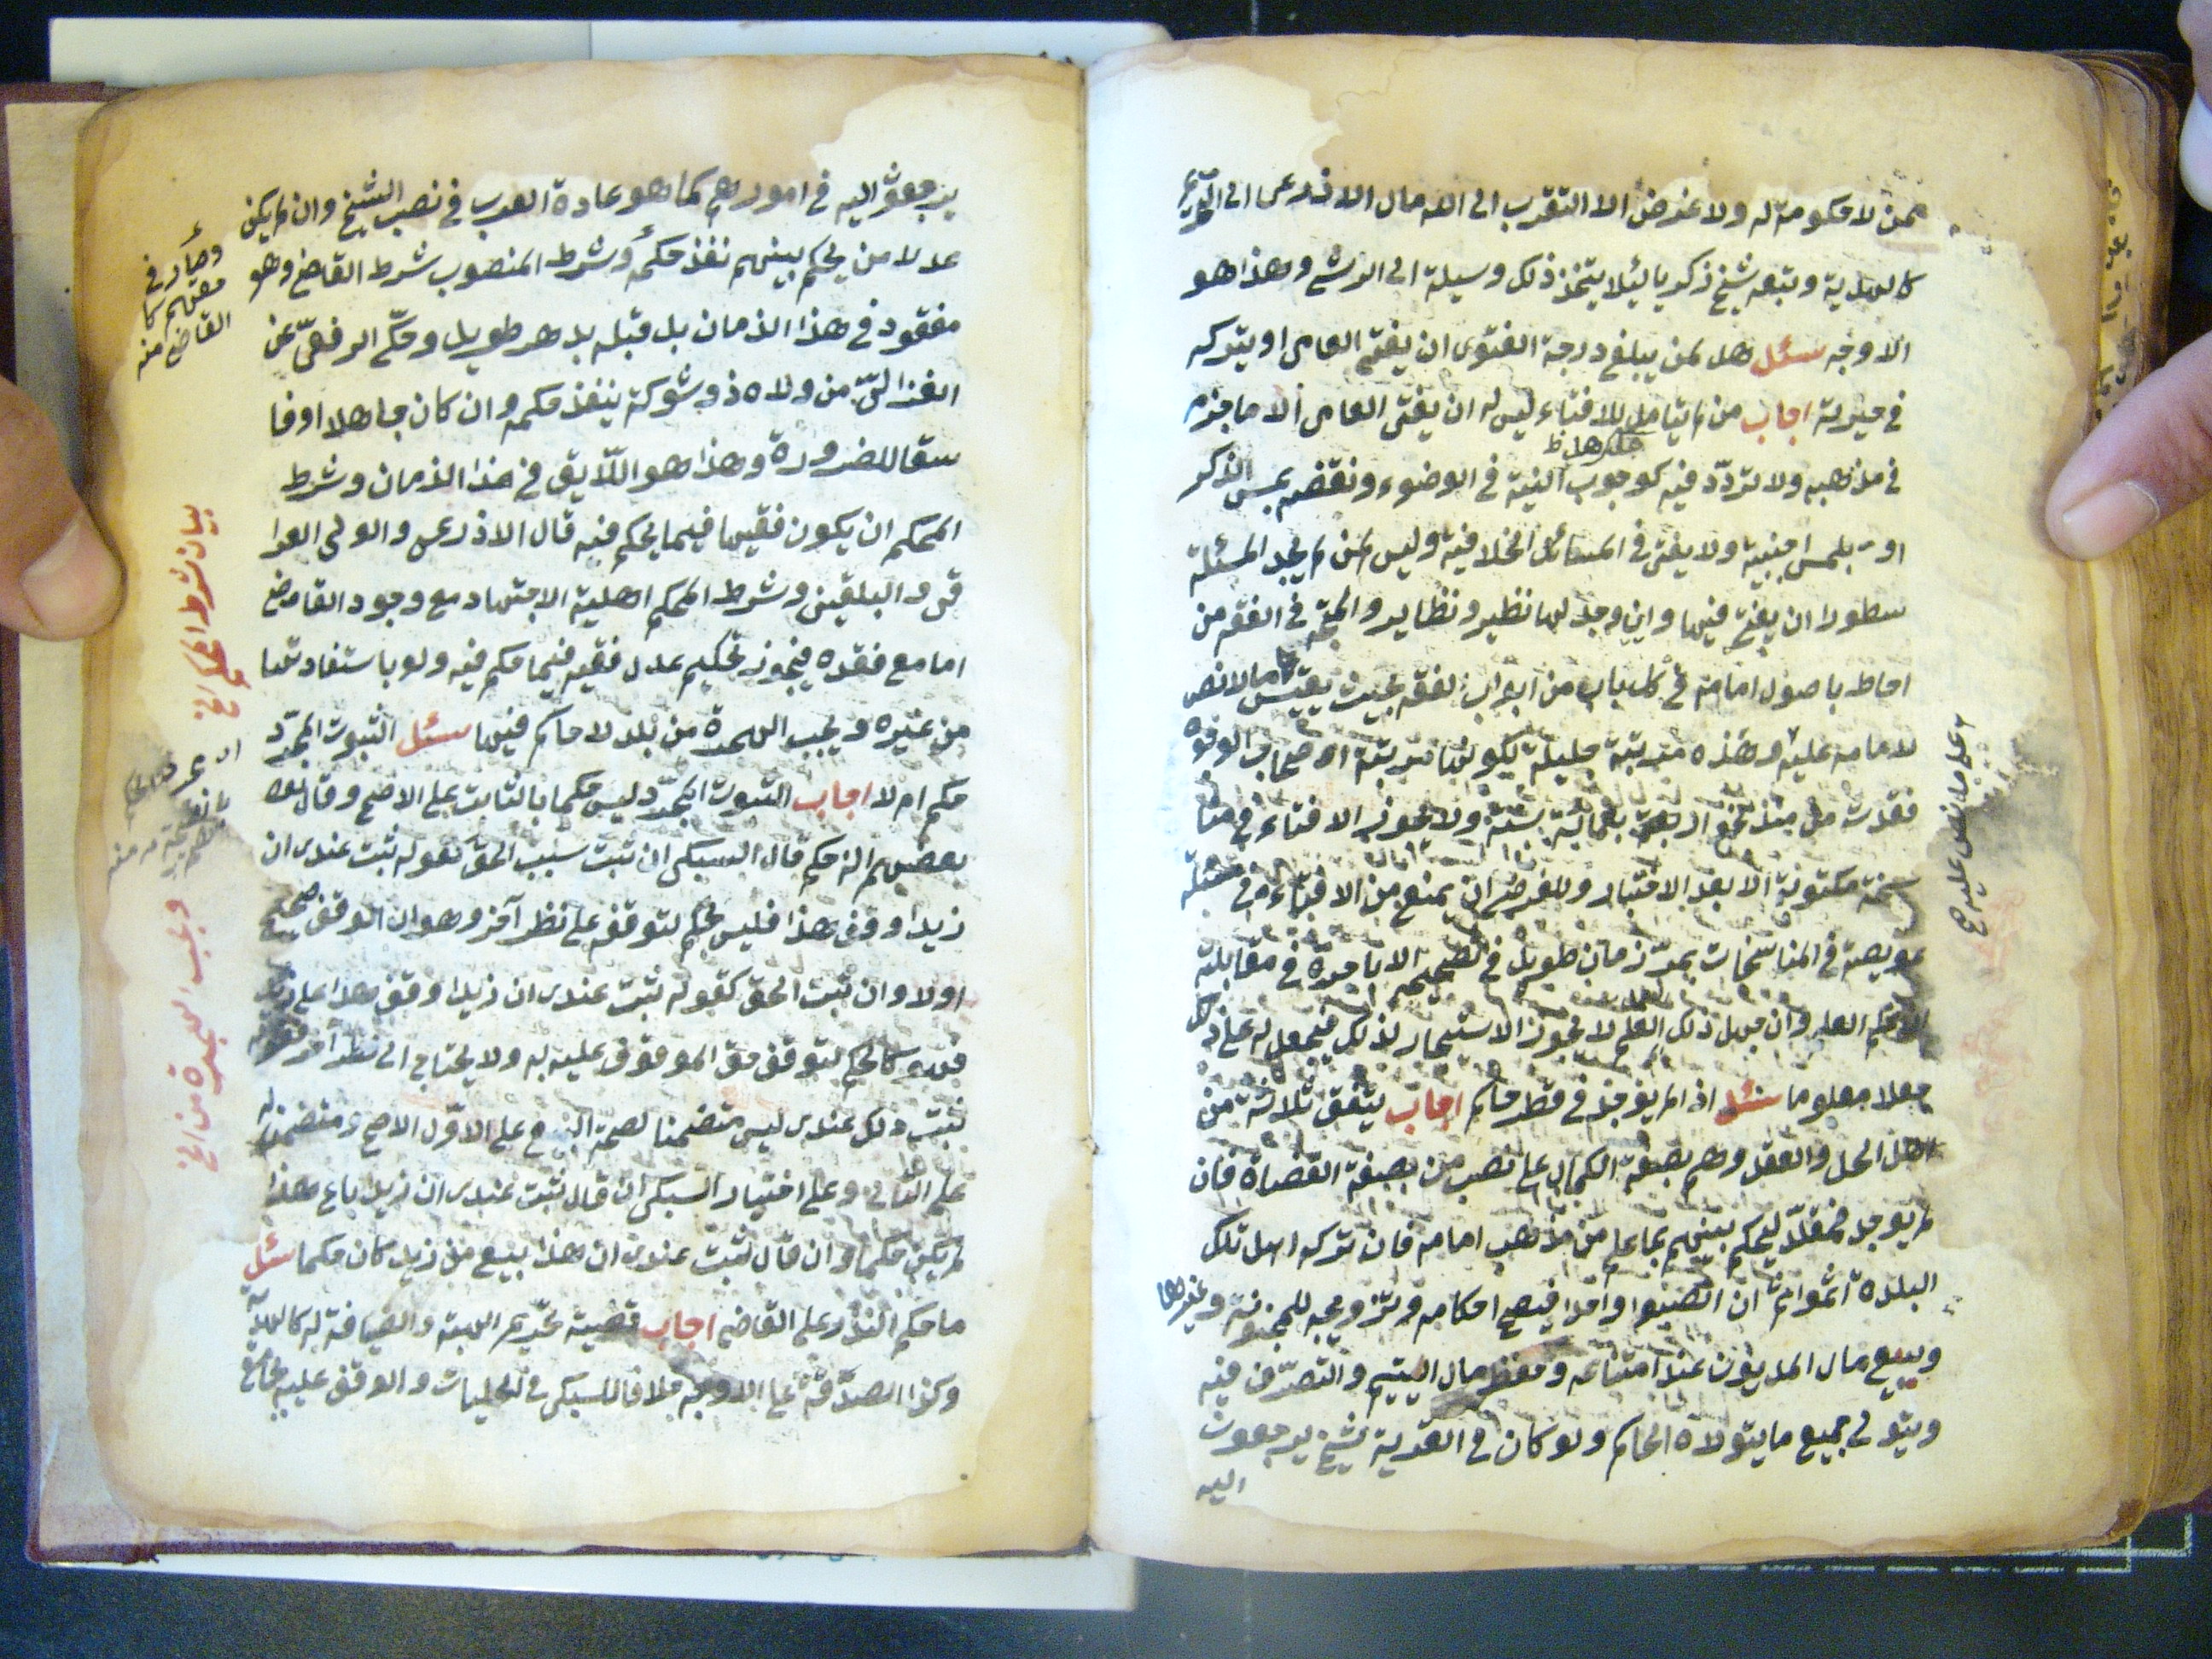 ممن لا حكومة له ولا غرض الا التقرب الى الله مال الاذرعى الى
كالهدية وتبعه شيخ زكريا لئلا يتخذ ذلك وسيلة الى الرشى وهذا هو
الاوجه سئل هل لمن يبلغ درجة الفتوى ان يفتي العامى او يتركه
في حيرته اجاب من لم يتأهل للافتاء ليس له ان يفتى العامى الا ما جزم
في مذهبه ولا تردّد فيه كوجوب النية في الوضوء ونقضه بمس الذكر
او بلمس اجنبية ولا يفتى في المسائل الخلافية وليس لمن لم يجد المسئلة
سطورا ان يفتي فيها وان وجد لها نظير ونظاير والمتبحر في الفقه من
احاط باصول امامه في كل باب من ابواب الفقه بحيث يقيس ما لا نص
لامامه عليه وهذه مرتبة جليلة لكونها مرتبة اصحاب الوجوه
فقدت من منذ نحو اربع بعمائة سنة ولا يجوز الافتاء في
نسخة مكتوبة الا بعد الاختبار وللفرضى ان يمتنع من الافتاء في مسئلة
عويصة في المناسخات يمرّ زمان طويل في تصحيحه الا باجرة في مقابلة
العلم وان جهل ذلك العمل لا يجوز الاستيجار لذلك فيجعل له على ذلك
جعلا معلوما سئل اذا لم يوجد في قطر حاكم اجاب يتفق ثلاثة من
اهل الحل والعقد وهم بصفة الكمال على نصب من بصفة القضاة فان
لم يوجد فمقلّد ليحكم بينهم بما علم من مذهب امامه فان تركه اهل تلك
البلدة اثموا ثم ان نصبوا واحدا فيصح احكامه وتزويجه للمجنونة وغيرها
وبيع مال المديون عند امتناعه وحفظ مال اليتيم والتصرّف فيه
ويتولى جميع ما يتولاه الحاكم ولو كان في القرية شيخ يرجعون
اليه
على ما نص عليه
يرجعون اليه في امورهم كما هو عادة العرب في نصب الشيخ وان لم يكن
عدلا من يحكم بينهم نفذ حكمه وشرط المنصوب شرط القاضي وهو
مفقود في هذا الزمان بل قبله بدهر طويل وحكى الرفعى عن
الغزالىّ من ولاه ذو شوكة ينفذ حكمه وان كان جاهلا او فا
سقا للضرورة وهذا هو اللّايق في هذا الزمان وشرط
المحكم ان يكون فقيها فيما يحكم فيه قال الاذرعى والولى العرا
قى والبلقينى وشرط المحكم اهلية الاجتهاد مع وجود القاضي
اما مع فقده فيجوز تحكيم عدل فقيه فيما حكم فيه ولو باستفادتها
من غيره ويجب الهجرة من بلد لا حاكم فيها سئل الثبوت المجرّد
حكم ام لا اجاب الثبوت المجرّد ليس حكما بالثابت على الاصح وقال
بعضهم انه حكم قال السبكى ان ثبت سبب الحق كقوله ثبت عندى ان
زيدا وقف هذا فليس بحكم لتوقفه على نظر آخر وهو ان الوقف صحيح
اولا وان ثبت الحق كقوله ثبت عندى ان زيدا وقف هذا على زيد
فهو كالحكم لتوقف حق الموقوف عليه به ولا يحتاج الى نظر آخر
ثبت ذلك عندى ليس متضمنا لصحة البيع على الاوّل الاصح ومتضمن له
على الثانى وعلى اختيار السبكى ان قال ثبت عندى ان زيدا باع هذا
لم يكن حكما وان قال ثبت عندى ان هذا بيع من زيد كان حكما سئل
ما حكم النذر على القاضي اجاب قضية تحريم الهبة والضيافة له كالهدية
وكذا الصدقة على الاوجه خلافا للسبكى في الحلبيات والوقف عليه
وصار في
حقهم كا
القاضي منه
بيان شرط المحكم الخ
ويجب الهجرة من الخ